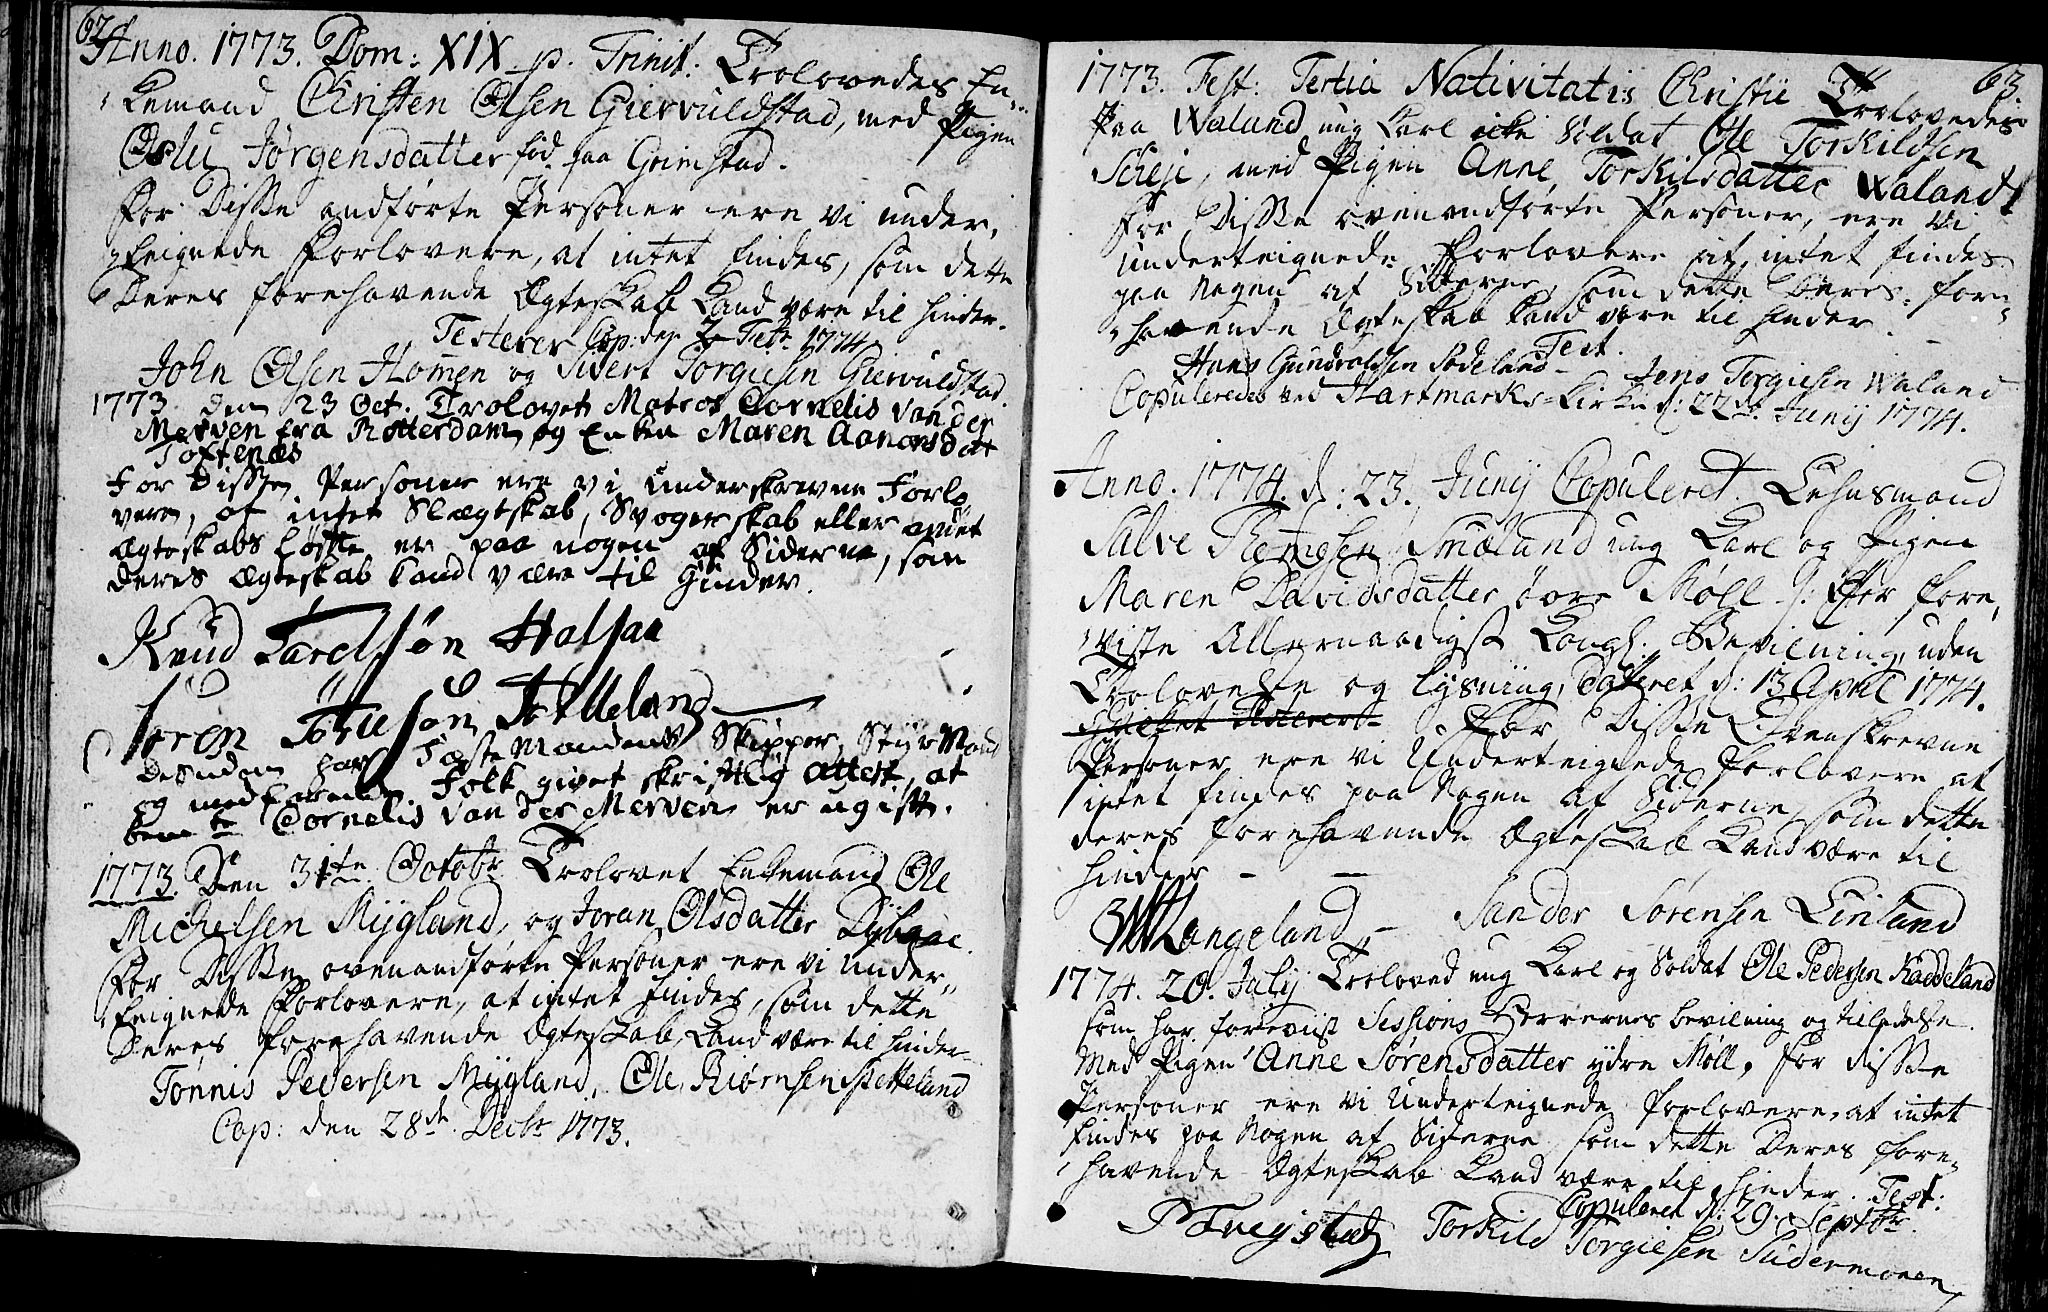 62
Anno. 1773. Dom: XIX p. Trinit: Trolovedes En-
kemand Christen Olsen Giervuldstad, med Pigen
Oslu Jørgensdatter fød paa Grimstad.
For Disse andførte Personer ere vi under,
teignede Forlovere, at intet findes, som dette
Deres forehavende Ægteskab kand være til hinder.
Testerer Cop: den 2 Febr 1774
John Olsen Homen og Sivert Torgiesen Giervuldstad.
1773. den 23 Oct. Trolovet Matros Cornelis van der
Merven fra Rotterdam, og Enken Maren Aanonsdatt
Toftenæs
For Disse Personer ere vi underskrevne Forlo
vere, at intet Slægtskab, Svogerskab eller andet
Ægteskabs løfte er paa nogen af Siderne, som
deres Ægteskab kand være til Hinder.
Knud Carelsøn Halsaa
Søren Søfren Søn Helleland
Desuden har Fæste Mandens Skipper, Styrmand
og medfarende Folk givet skriftlig Attest, at
bem.te Cornelis van der Merven er ugift.
1773. Den 31te Octobr Trolovet Enkemand Ole
Michelsen Mÿgland, og Joran Olsdatter Dybaae.
For Disse ovenandførte Personer ere vi under,,
teignede Forlovere, at intet findes, som dette
Deres forehavende Ægteskab, kand være til hinder
Tønnis Pedersen Mÿgland. Ole Biørnsen Spetteland
Cop: den 28de Decbr 1773.
63.
1773. Fest: Tertia Nativitatis Christii Trolovedes
paa Waland ung Karl icke Soldat Ole Torkildsen
Scheje, med Pigen Anne Torkilsdatter Waland
For Disse ovenandførte Personer, ere vi
underteignede Forlovere at intet findes
paa Nogen af Siderne, som dette Deres fore
havende Ægteskab kand være til hinder.
Test.
Hans Gundvaldsen Rodeland - Jens Torgiesen Waland
Copuleredes ved Hartmarks Kirke d: 22de Junij 1774.
Anno. 1774. d: 23. Junij Copuleret Lehnsmand
Salve Remesen Smælund ung Karl og Pigen
Maren Davidsdatter øvre Møll. Efter fore,
viste Allernaadigst Kongl: Bevilning, uden
Trolovelse og Lysning, Dateret d: 13 April 1774.
Hvilket testerer For Disse Ovenskrevne
Personer ere vi Underteignede Forlovere at
intet findes paa Nogen af Siderne, som dette
deres forehavende Ægteskab kand være til
hinder - -
Langeland - Sander Sørensen Linland
1774. 20. Julij Troloved ung Karl og Soldat Ole Pedersen Kaddeland
som har foreviist Sessions Herrernes bevilning og tiladelse.
Med Pigen Anne Sørensdatter ydre Møll, For disse
Personer ere vi Underteignede Forlovere, at intet
findes paa Nogen af Siderne, som dette Deres fore,
havende Ægteskab kand være til hinder. Test:
Copuleret d: 29. Septbr.
Torkild Torgiesen Sudermonen